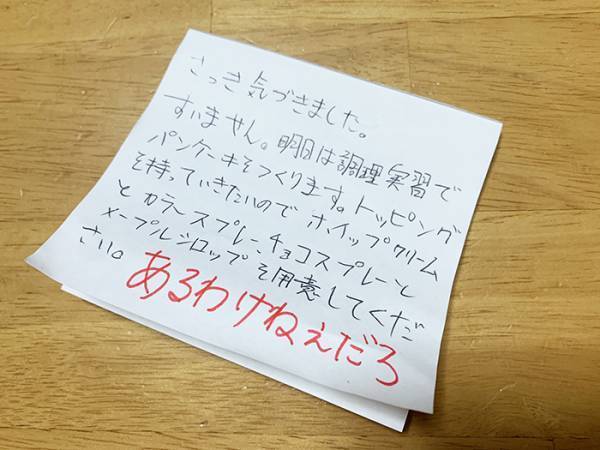 さっき気づきました。
すいません。明日は調理実習で
パンケーキをつくります。トッピング
を持っていきたいのでホイップクリーム
とカラースプレーチョコスプレーと
メープルシロップを用意してくだ
さい。
あるわけねぇだろ